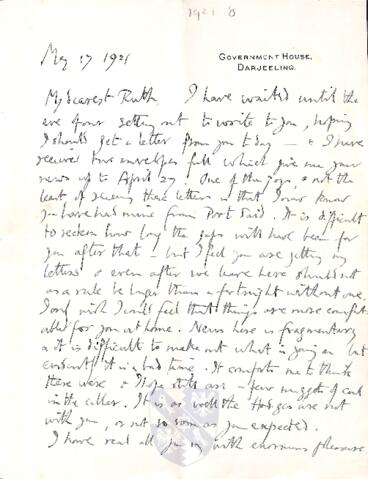 1921 8
May 17 1921
GOVERNMENT HOUSE,
DARJEELING.
My dearest Ruth, I have waited until the
eve of our setting out to write to you, hoping
I should get a letter from you today — & I have
received two envelopes full which give me your
news up to April 27. One of the joys, & not the
least of receiving these letters is that I now know
you have had mine from Port Said. It is difficult
to reckon how long the gaps will have been for
you after that — but I feel you are getting my
letters & even after we leave here should not
as a rule be longer than a fortnight without one.
I only wish I could feel that things are more comfort-
able for you at home. News here is fragmentary
& it is difficult to make out what is going on but
evidently it is a bad time. It comforts me to think
there were & I hope still are a few nuggets of coal
in the cellar. It is as well the Hodges are not
with you, or not so soon as you expected.
I have read all you say with enormous pleasure